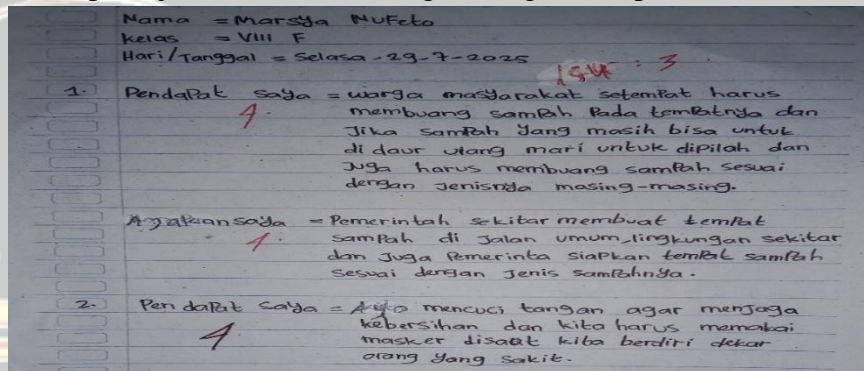 Nama = Marsya Nufeto
kelas = VIII F
Hari/Tanggal = Selasa-29-7-2025
: 3
1. Pendapat saya = warga masyarakat setempat harus
1.
membuang sampah pada tempatnya dan
Jika sampah yang masih bisa untuk
di daur ulang mari untuk dipilah dan
Juga harus membuang sampah sesuai
dengan Jenisnya masing-masing.
saya = Pemerintah sekitar membuat tempat
1.
sampah di Jalan umum, lingkungan sekitar
dan Juga Pemerinta siapkan tempat sampah
sesuai dengan Jenis sampahnya.
2. Pendapat saya = Ayo mencuci tangan agar menjaga
1
kebersihan dan kita harus memakai
masker disaat kita berdiri dekar
orang yang sakit.